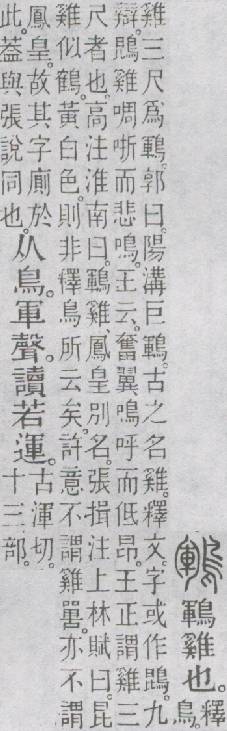 鶤 鶤雞也。釋
鳥。
雞三尺爲鶤。郭曰。陽溝巨鶤。古之名雞。釋文。字或作鵾。九
辯。鵾雞啁哳而悲鳴。王云。奮翼鳴呼而低昂。王正謂雞三
尺者也。高注淮南曰。鶤雞、鳳皇別名。張揖注上林賦曰。昆
雞似鶴。黃白色。則非釋鳥所云矣。許意不謂雞嘼。亦不謂
鳳皇。故其字廁於
此。葢與張說同也。
从鳥。軍聲。讀若運。
古渾切。
十三部。